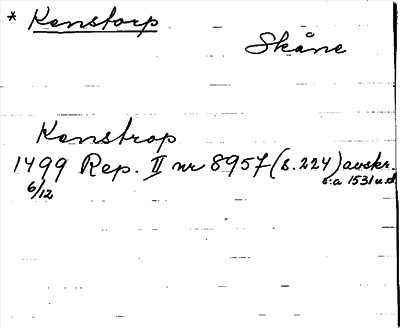 * Kenstorp
Skåne
Kenstrop
1499 Rep. II nr 8957 (s. 224) avskr.
6/12 o:a 1531 u.d.